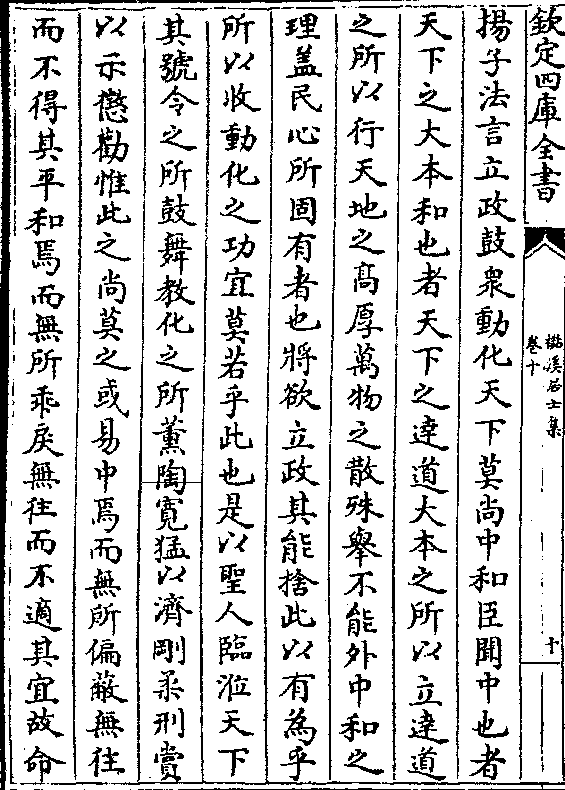 欽定四庫全書
樵溪居士集
卷十
十
揚子法言立政鼓衆動化天下莫尚中和臣聞中也者
天下之大本和也者天下之達道大本之所以立達道
之所以行天地之髙厚萬物之散殊舉不能外中和之
理盖民心所固有者也將欲立政其能捨此以有為乎
所以收動化之功宜莫若乎此也是以聖人臨涖天下
其號令之所鼓舞教化之所薰陶寛猛以濟剛柔刑賞
以示懲勸惟此之尚莫之或易中焉而無所偏蔽無往
而不得其平和焉而無所乖戾無往而不適其宜故命